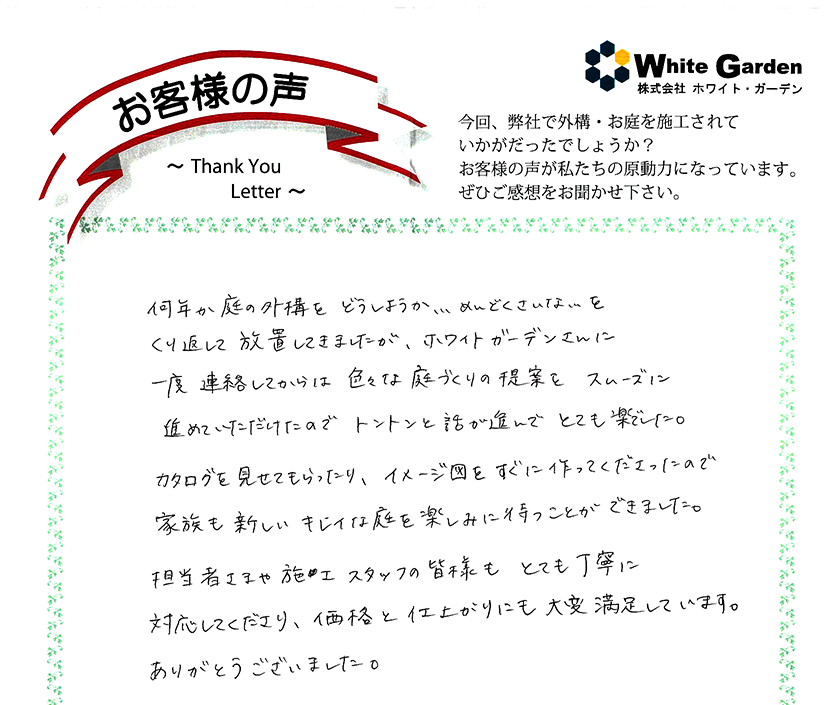 お客様の声
～ Thank You
Letter ～
White Garden
株式会社 ホワイト・ガーデン
今回、弊社で外構・お庭を施工されて
いかがだったでしょうか？
お客様の声が私たちの原動力になっています。
ぜひご感想をお聞かせ下さい。
何年か庭の外構を どうしようか、、、めんどくさいな、、、を
くり返して 放置してきましたが、ホワイトガーデンさんに
一度 連絡してからは 色々な庭づくりの提案を スムーズに
進めていただけたので トントンと話が進んで とても楽でした。
カタログを見せてもらったり、イメージ図をすぐに作ってくださったので
家族も新しいキレイな庭を楽しみに待つことができました。
担当者さまや施工スタッフの皆様も とても丁寧に
対応してくださり、価格と仕上がりにも大変満足しています。
ありがとうございました。